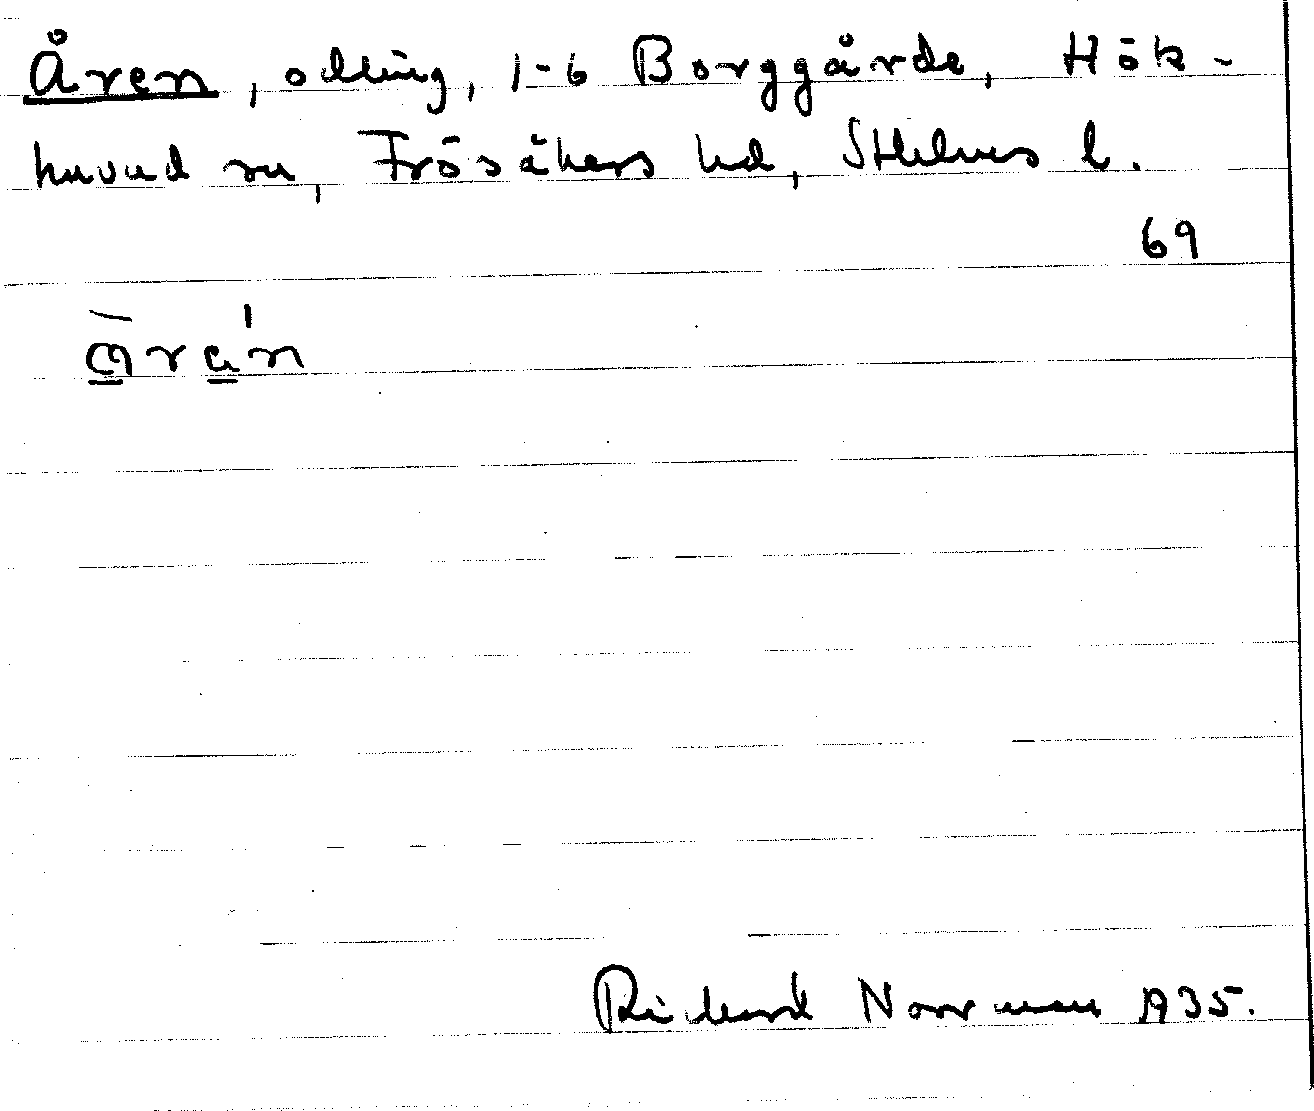 Åren, odling, 1-6 Borggårde, Hök-
huvud sn, Frösåkers hd, Sthlms l.
69
Richard Norrman 1935.